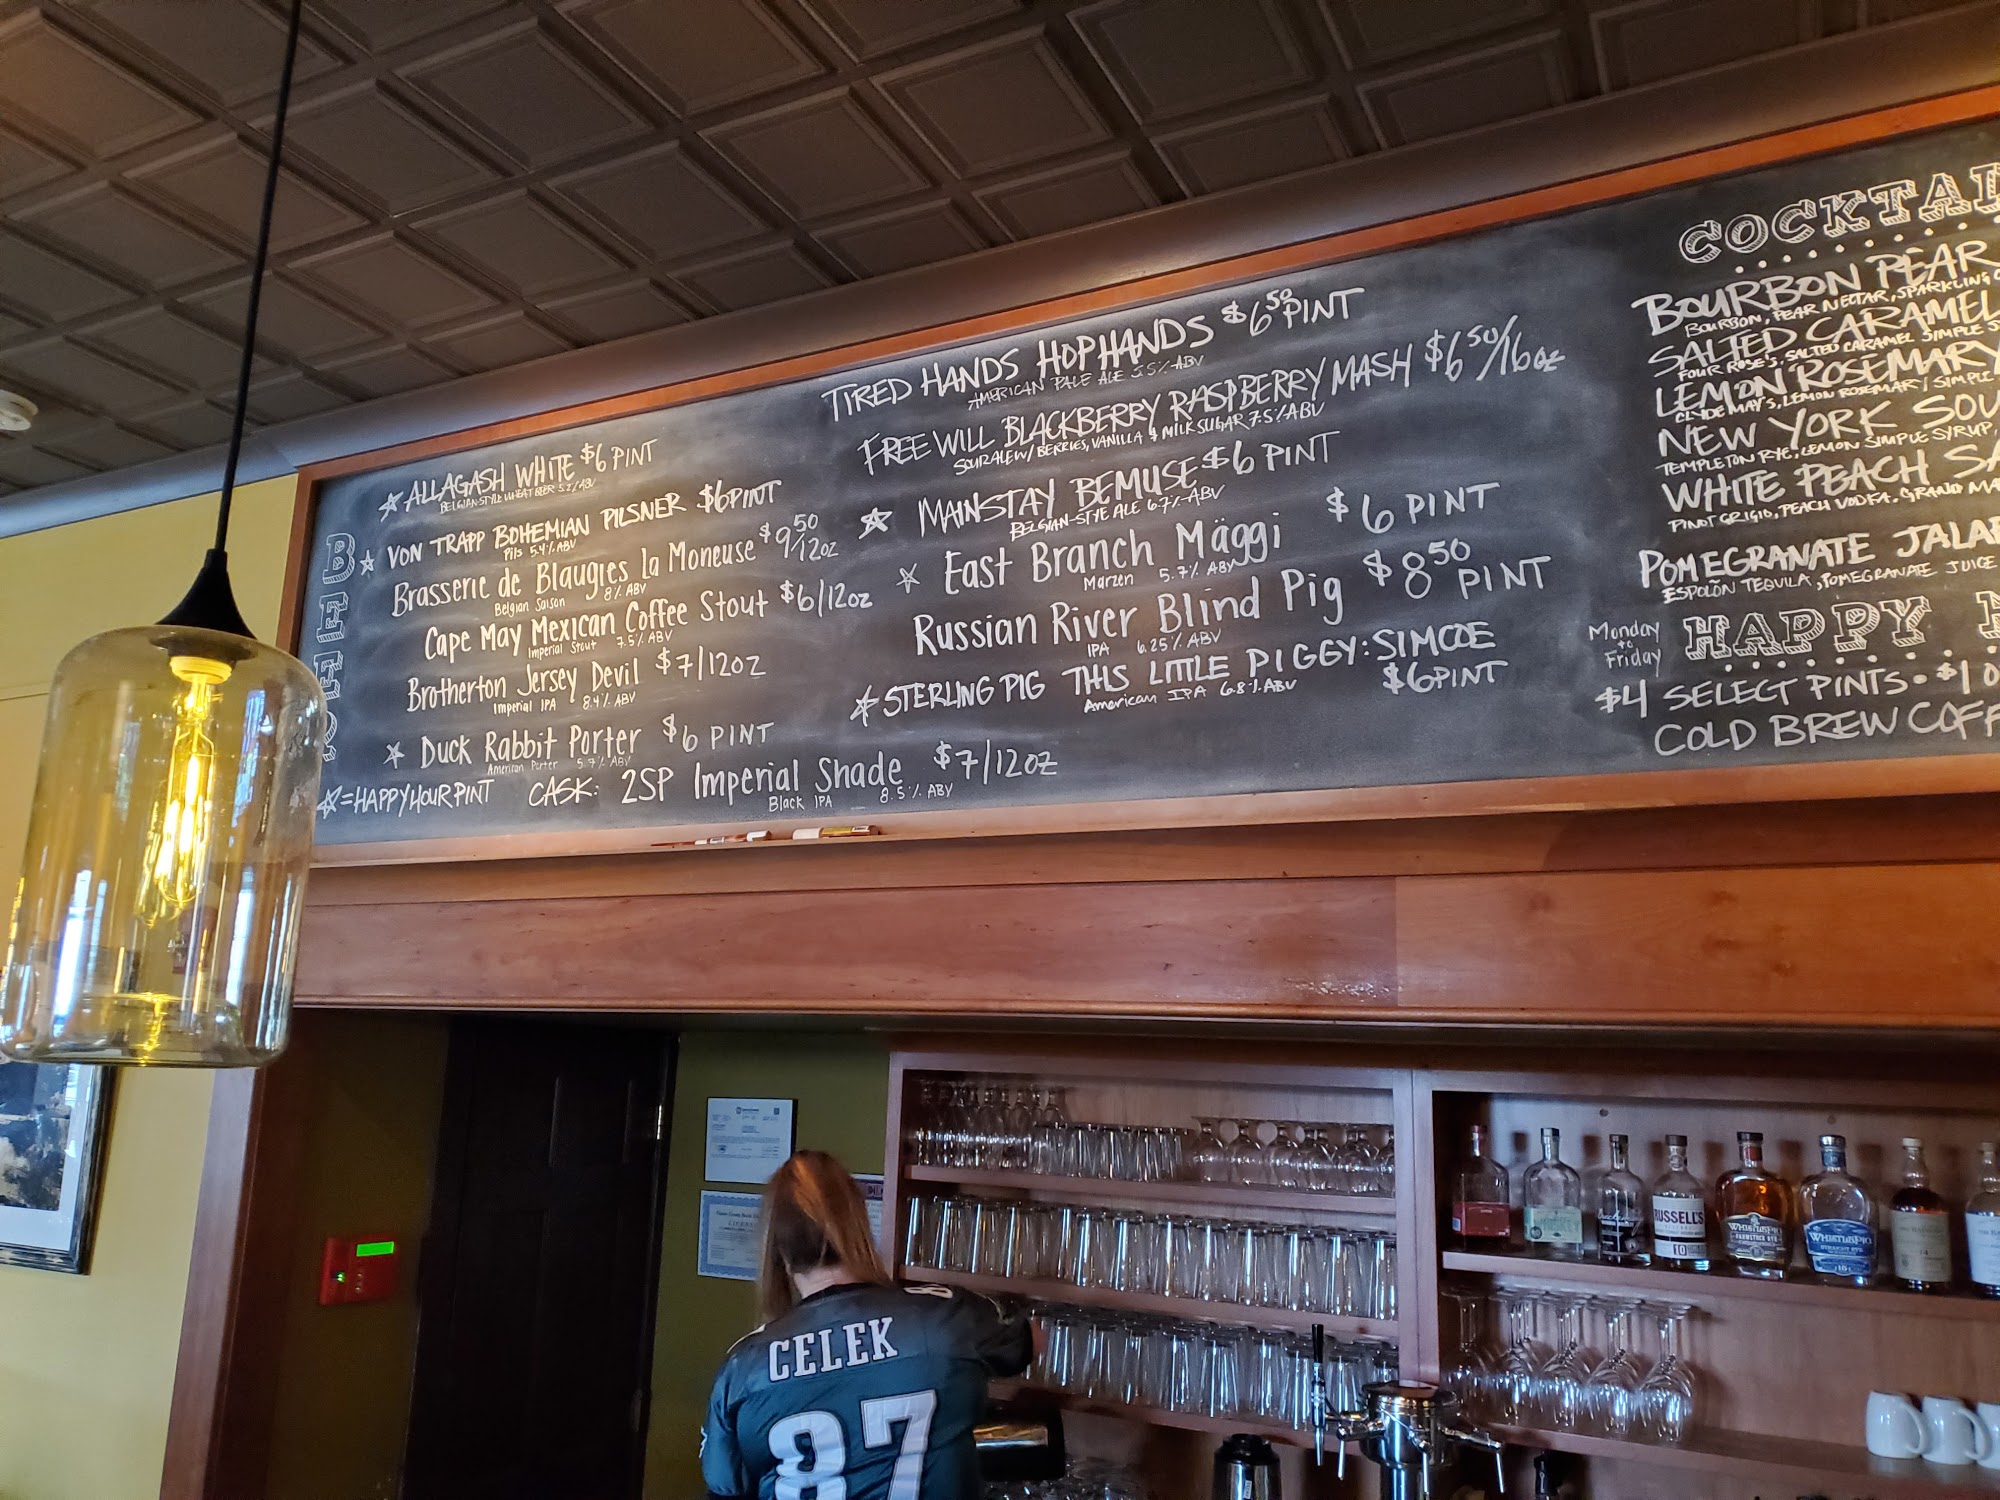 BEER
☆ ALLAGASH WHITE $6 PINT
BELGIAN-STYLE WHEAT BEER 5.2% ABV
☆ VON TRAPP BOHEMIAN PILSNER $6 PINT
Pils 5.4% ABV
Brasserie de Blaugies la Moneuse $9 50/12oz
Belgian Saison 8% ABV
Cape May Mexican Coffee Stout $6/12oz
Imperial Stout 7.5% ABV
Brotherton Jersey Devil $7/12oz
Imperial IPA 8.4% ABV
☆ Duck Rabbit Porter $6 PINT
American Porter 5.7% ABV
☆=HAPPY HOUR PINT
CASK: 2SP Imperial Shade $7/12oz
Black IPA 8.5% ABV
TIRED HANDS HOPHANDS $6 50 PINT
AMERICAN PALE ALE 5.5% ABV
FREE WILL BLACKBERRY RASPBERRY MASH $6 50/16oz
SOUR ALE W/ BERRIES, VANILLA & MILK SUGAR 7.5% ABV
☆ MAINSTAY BEMUSE $6 PINT
BELGIAN-STYLE ALE 6.7% ABV
☆ East Branch Mäggi $6 PINT
Marzen 5.7% ABV
Russian River Blind Pig $8 50 PINT
IPA 6.25% ABV
☆ STERLING PIG THIS LITTLE PIGGY: SIMCOE
American IPA 6.8% ABV $6 PINT
COCKTAI
BOURBON PEAR
BOURBON, PEAR NECTAR, SPARKLING
SALTED CARAMEL
FOUR ROSE'S, SALTED CARAMEL SIMPLE
LEMON ROSEMARY
CLYDE MAY'S, LEMON ROSEMARY SIMPLE
NEW YORK SOU
TEMPLETON RYE, LEMON SIMPLE SYRUP,
WHITE PEACH SA
PINOT GRIGIO, PEACH VODKA, GRAND MA
POMEGRANATE JALA
ESPOLÒN TEQUILA, POMEGRANATE JUICE
Monday to Friday
HAPPY
$4 SELECT PINTS • $1 O
COLD BREW COFF
RUSSELL'S
10
WHISTLEPIG
WHISTLEPIG
STRAIGHT RYE
CELEK
87